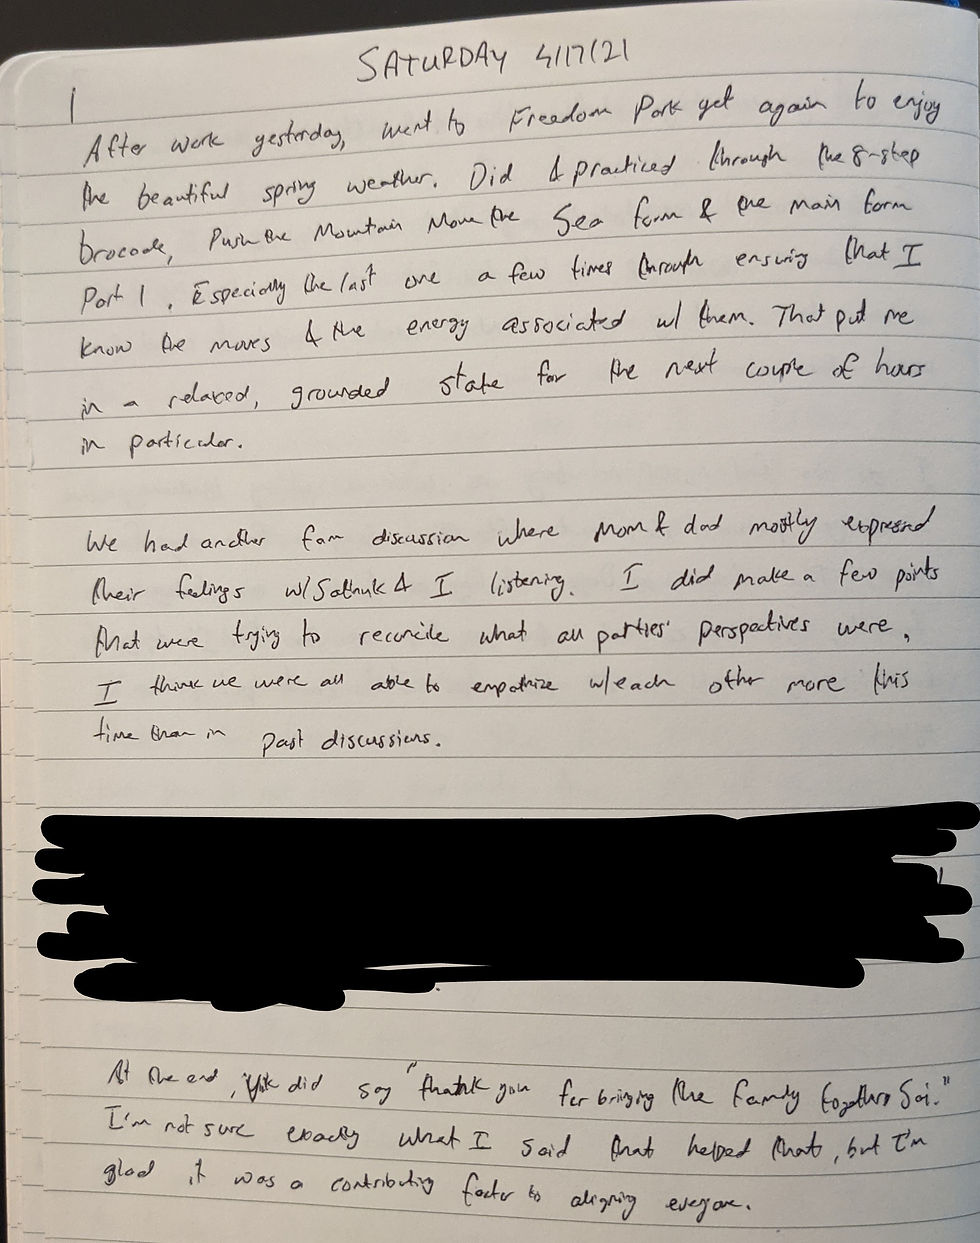 SATURDAY 4/17/21
1
After work yesterday, went to Freedom Park yet again to enjoy
the beautiful spring weather. Did & practiced through the 8-step
brocade, Push the Mountain Move the Sea form & the main form
Part 1. Especially the last one a few times through ensuring that I
know the moves & the energy associated w/ them. That put me
in a relaxed, grounded state for the next couple of hours
in particular.
We had another fam discussion where Mom & dad mostly expressed
their feelings w/ & I listening. I did make a few points
that were trying to reconcile what all parties' perspectives were,
I think we were all able to empathize w/each other more this
time than in past discussions.
At the end, did say "thank you for bringing the family together Sai."
I'm not sure exactly what I said that helped that, but I'm
glad it was a contributing factor to aligning everyone.